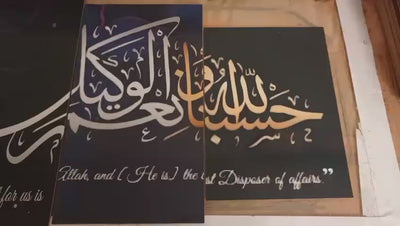 حسبنا الله ونعم الوكيل
for us is Allah, and [ He is ] the st Disposer of affairs.”